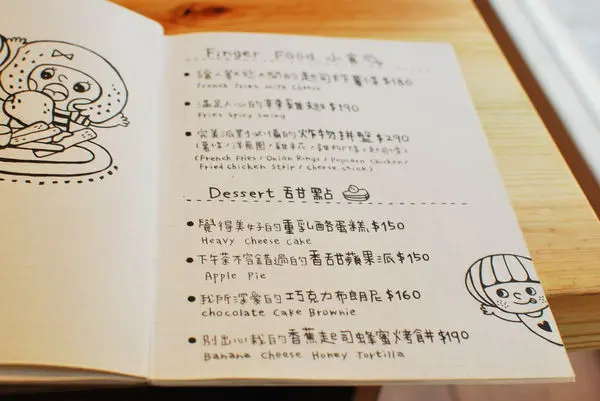 Finger Food 小食
的起司炸薯條 $180
French fries with cheese
滿足人心的 $190
Fries spicy swing
完美派對必備的炸物拼盤 $290
(薯條/洋蔥圈/雞米花/雞柳條/起司條)
(French Fries / Onion Rings / Popcorn chicken/
Fried chicken Strip / cheese stick)
Dessert 甜點
覺得美好的重乳酪蛋糕 $150
Heavy cheese cake
下午茶不容錯過的香甜蘋果派 $150
Apple Pie
我所深愛的巧克力布朗尼 $160
chocolate cake Brownie
別出心裁的香蕉起司蜂蜜烤餅 $190
Banana cheese Honey Tortilla